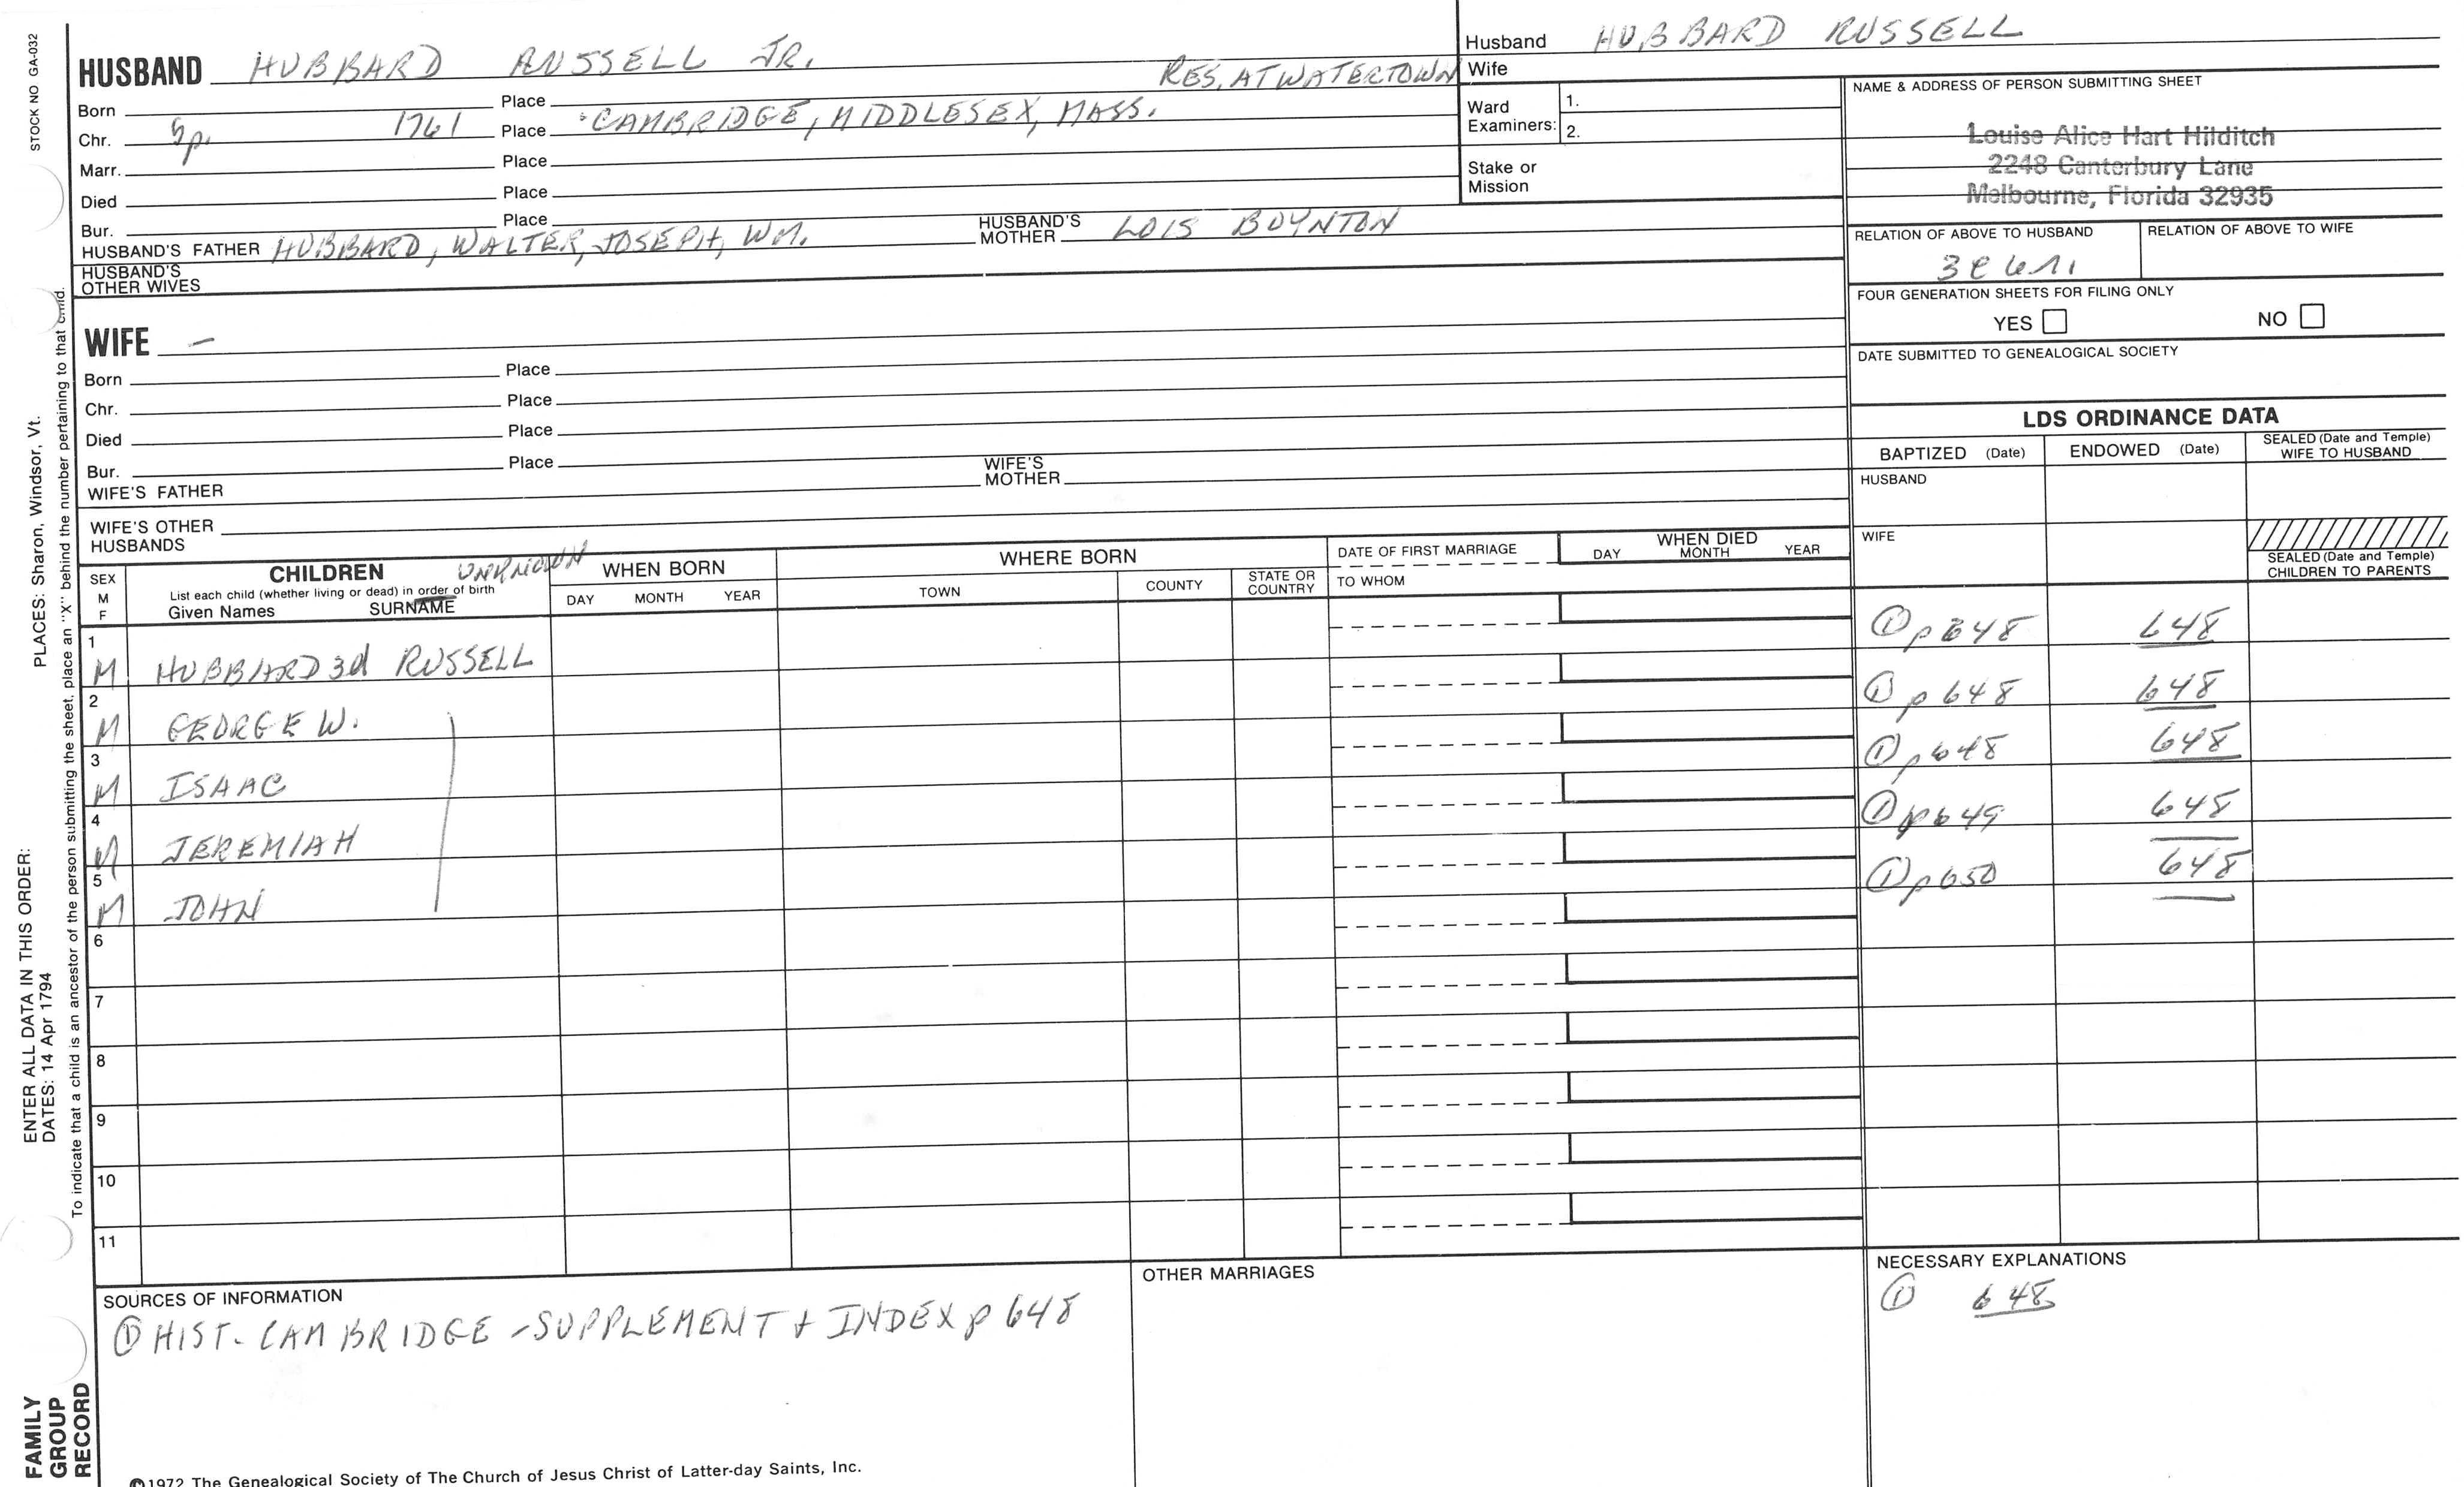 STOCK NO GA-032
HUSBAND HUBBARD RUSSELL JR. RES. AT WATERTOWN
Born Place
Chr. 1761 Place CAMBRIDGE, MIDDLESEX, MASS.
Marr. Place
Died Place
Bur. Place
HUSBAND'S FATHER HUBBARD, WALTER, JOSEPH, WM. HUSBAND'S MOTHER LOIS BOYNTON
HUSBAND'S OTHER WIVES
Husband HUBBARD RUSSELL
Wife
Ward Examiners: 1.
2.
Stake or Mission
NAME & ADDRESS OF PERSON SUBMITTING SHEET
Louise Alice Hart Hilditch
2248 Canterbury Lane
Melbourne, Florida 32935
RELATION OF ABOVE TO HUSBAND RELATION OF ABOVE TO WIFE
FOUR GENERATION SHEETS FOR FILING ONLY
YES NO
DATE SUBMITTED TO GENEALOGICAL SOCIETY
WIFE –
Born Place
Chr. Place
Died Place
Bur. Place
WIFE'S FATHER WIFE'S MOTHER
WIFE'S OTHER HUSBANDS
LDS ORDINANCE DATA
BAPTIZED (Date) ENDOWED (Date) SEALED (Date and Temple) WIFE TO HUSBAND
HUSBAND
WIFE
SEALED (Date and Temple) CHILDREN TO PARENTS
SEX M F
CHILDREN UNKNOWN
List each child (whether living or dead) in order of birth
Given Names SURNAME
WHEN BORN
DAY MONTH YEAR
WHERE BORN
TOWN COUNTY STATE OR COUNTRY
DATE OF FIRST MARRIAGE
TO WHOM
WHEN DIED
DAY MONTH YEAR
1 M HUBBARD 3d RUSSELL ① p 648 648
2 M GEORGE W. ① p 648 648
3 M ISAAC ① p 648 648
4 M JEREMIAH ① p 649 648
5 M JOHN ① p 650 648
6
7
8
9
10
11
SOURCES OF INFORMATION
① HIST. CAMBRIDGE - SUPPLEMENT + INDEX p 648
OTHER MARRIAGES
NECESSARY EXPLANATIONS
① 648
©1972 The Genealogical Society of The Church of Jesus Christ of Latter-day Saints, Inc.
FAMILY GROUP RECORD
ENTER ALL DATA IN THIS ORDER:
DATES: 14 Apr 1794
PLACES: Sharon, Windsor, Vt.
To indicate that a child is an ancestor of the person submitting the sheet, place an "X" behind the number pertaining to that child.